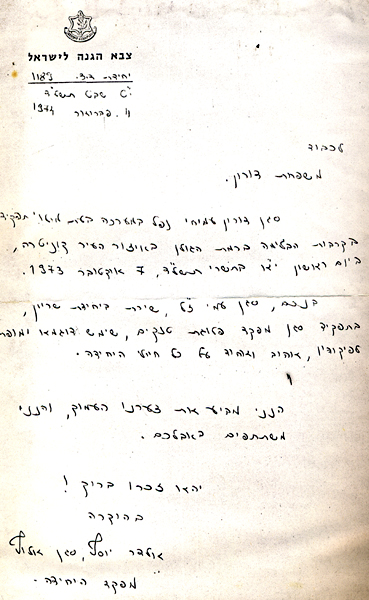 צבא הגנה לישראל
יחידת ד.צ.
י"ט שבט תשל"ד
11. פברואר 1974
לכבוד
משפחת דורון.
סגן דורון עמיחי נפל במערכה בעת מילוי תפקידו
בקרבות הבלימה ברמת הגולן באיזור העיר קוניטרה,
ביום ראשון י"א בתשרי תשל"ד, 7 אוקטובר 1973.
בנכם, סגן עמי ז"ל, שירת ביחידת שריון,
בתפקיד סגן מפקד פלוגת טנקים, שימש דוגמא ומופת
לפיקודיו, אהוב ואהוד על כל חיילי היחידה.
הנני מביע את צערנו העמוק, והנני
משתתפים באבלכם.
יהא זכרו ברוך!
בהוקרה
אולדר יוסף, סגן אלוף
מפקד היחידה.